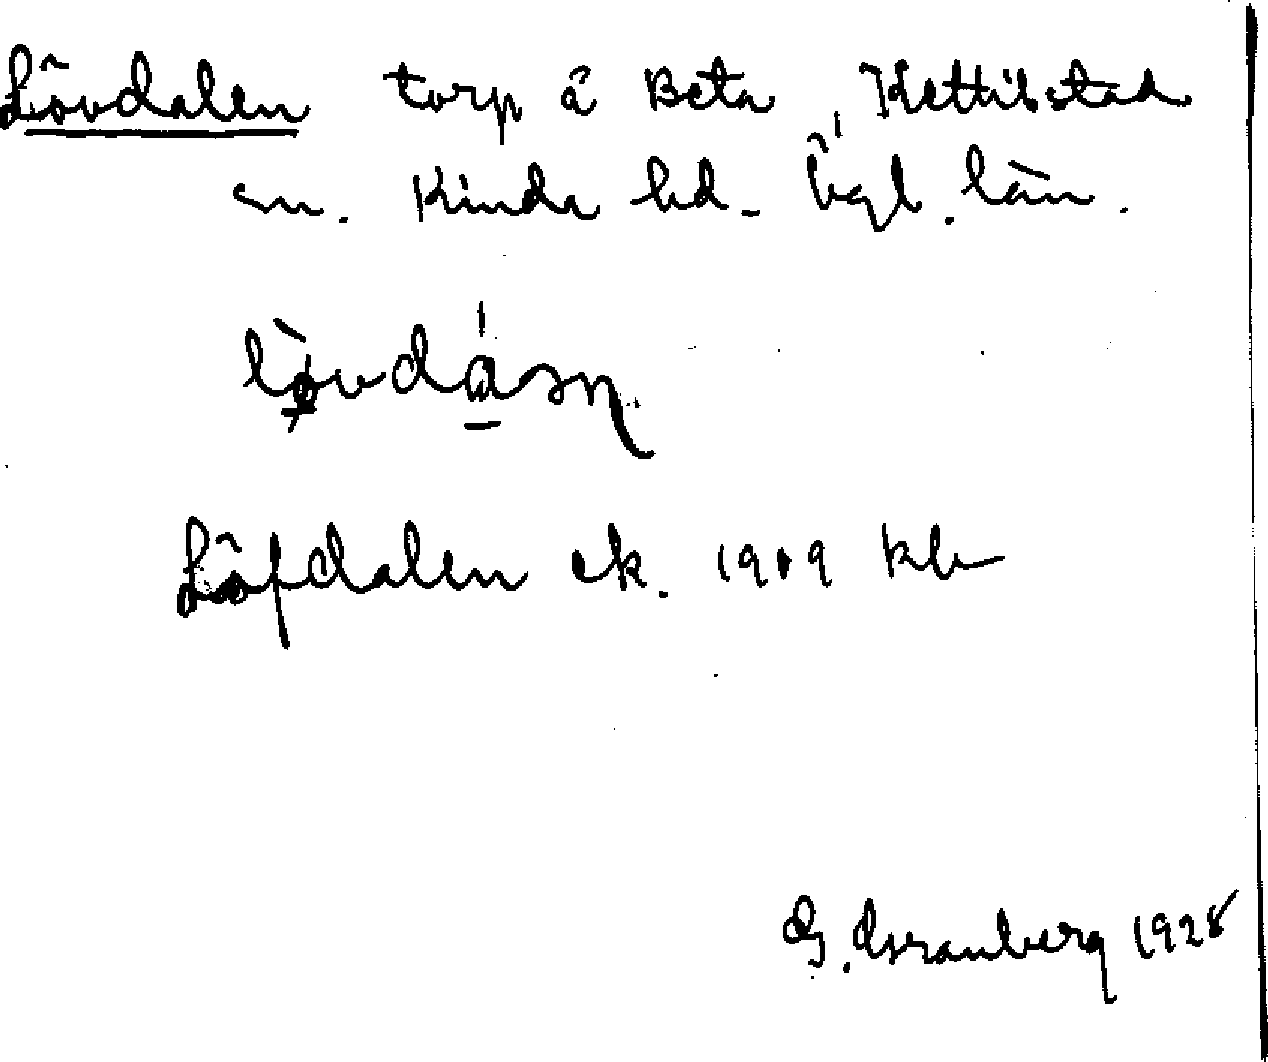 Lövdalen torp å Beta, Kettilstad
sn. Kinda hd. Ögl. län.
Löfdalen ek. 1909 kb
G. Granberg 1928